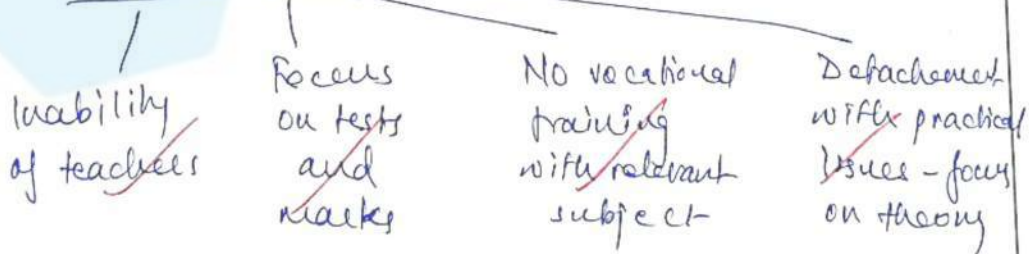 Inability
of teachers
Focus
on tests
and
marks
No vocational
training
with relevant
subject
Detachement
with practical
Issues - focus
on theory